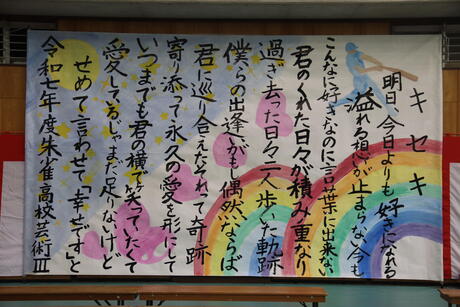 キセキ
明日、今日よりも好きになれる
溢れる想いが止まらない今も
こんなに好きなのに言葉に出来ない
君のくれた日々が積み重なり
過ぎ去った日々二人歩いた軌跡
僕らの出逢いがもし偶然ならば
君に巡り合えたそれって奇跡
寄り添って永久の愛を形にして
いつまでも君の横で笑っていたくて
愛している、じゃまだ足りないけど
せめて言わせて「幸せです」と
令和七年度朱雀高校芸術Ⅲ